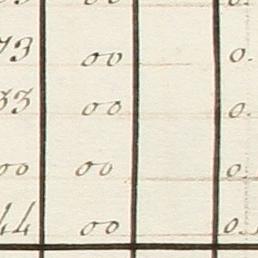 73 00 0.
33 00 0.
00 00 0.
44 00 0.